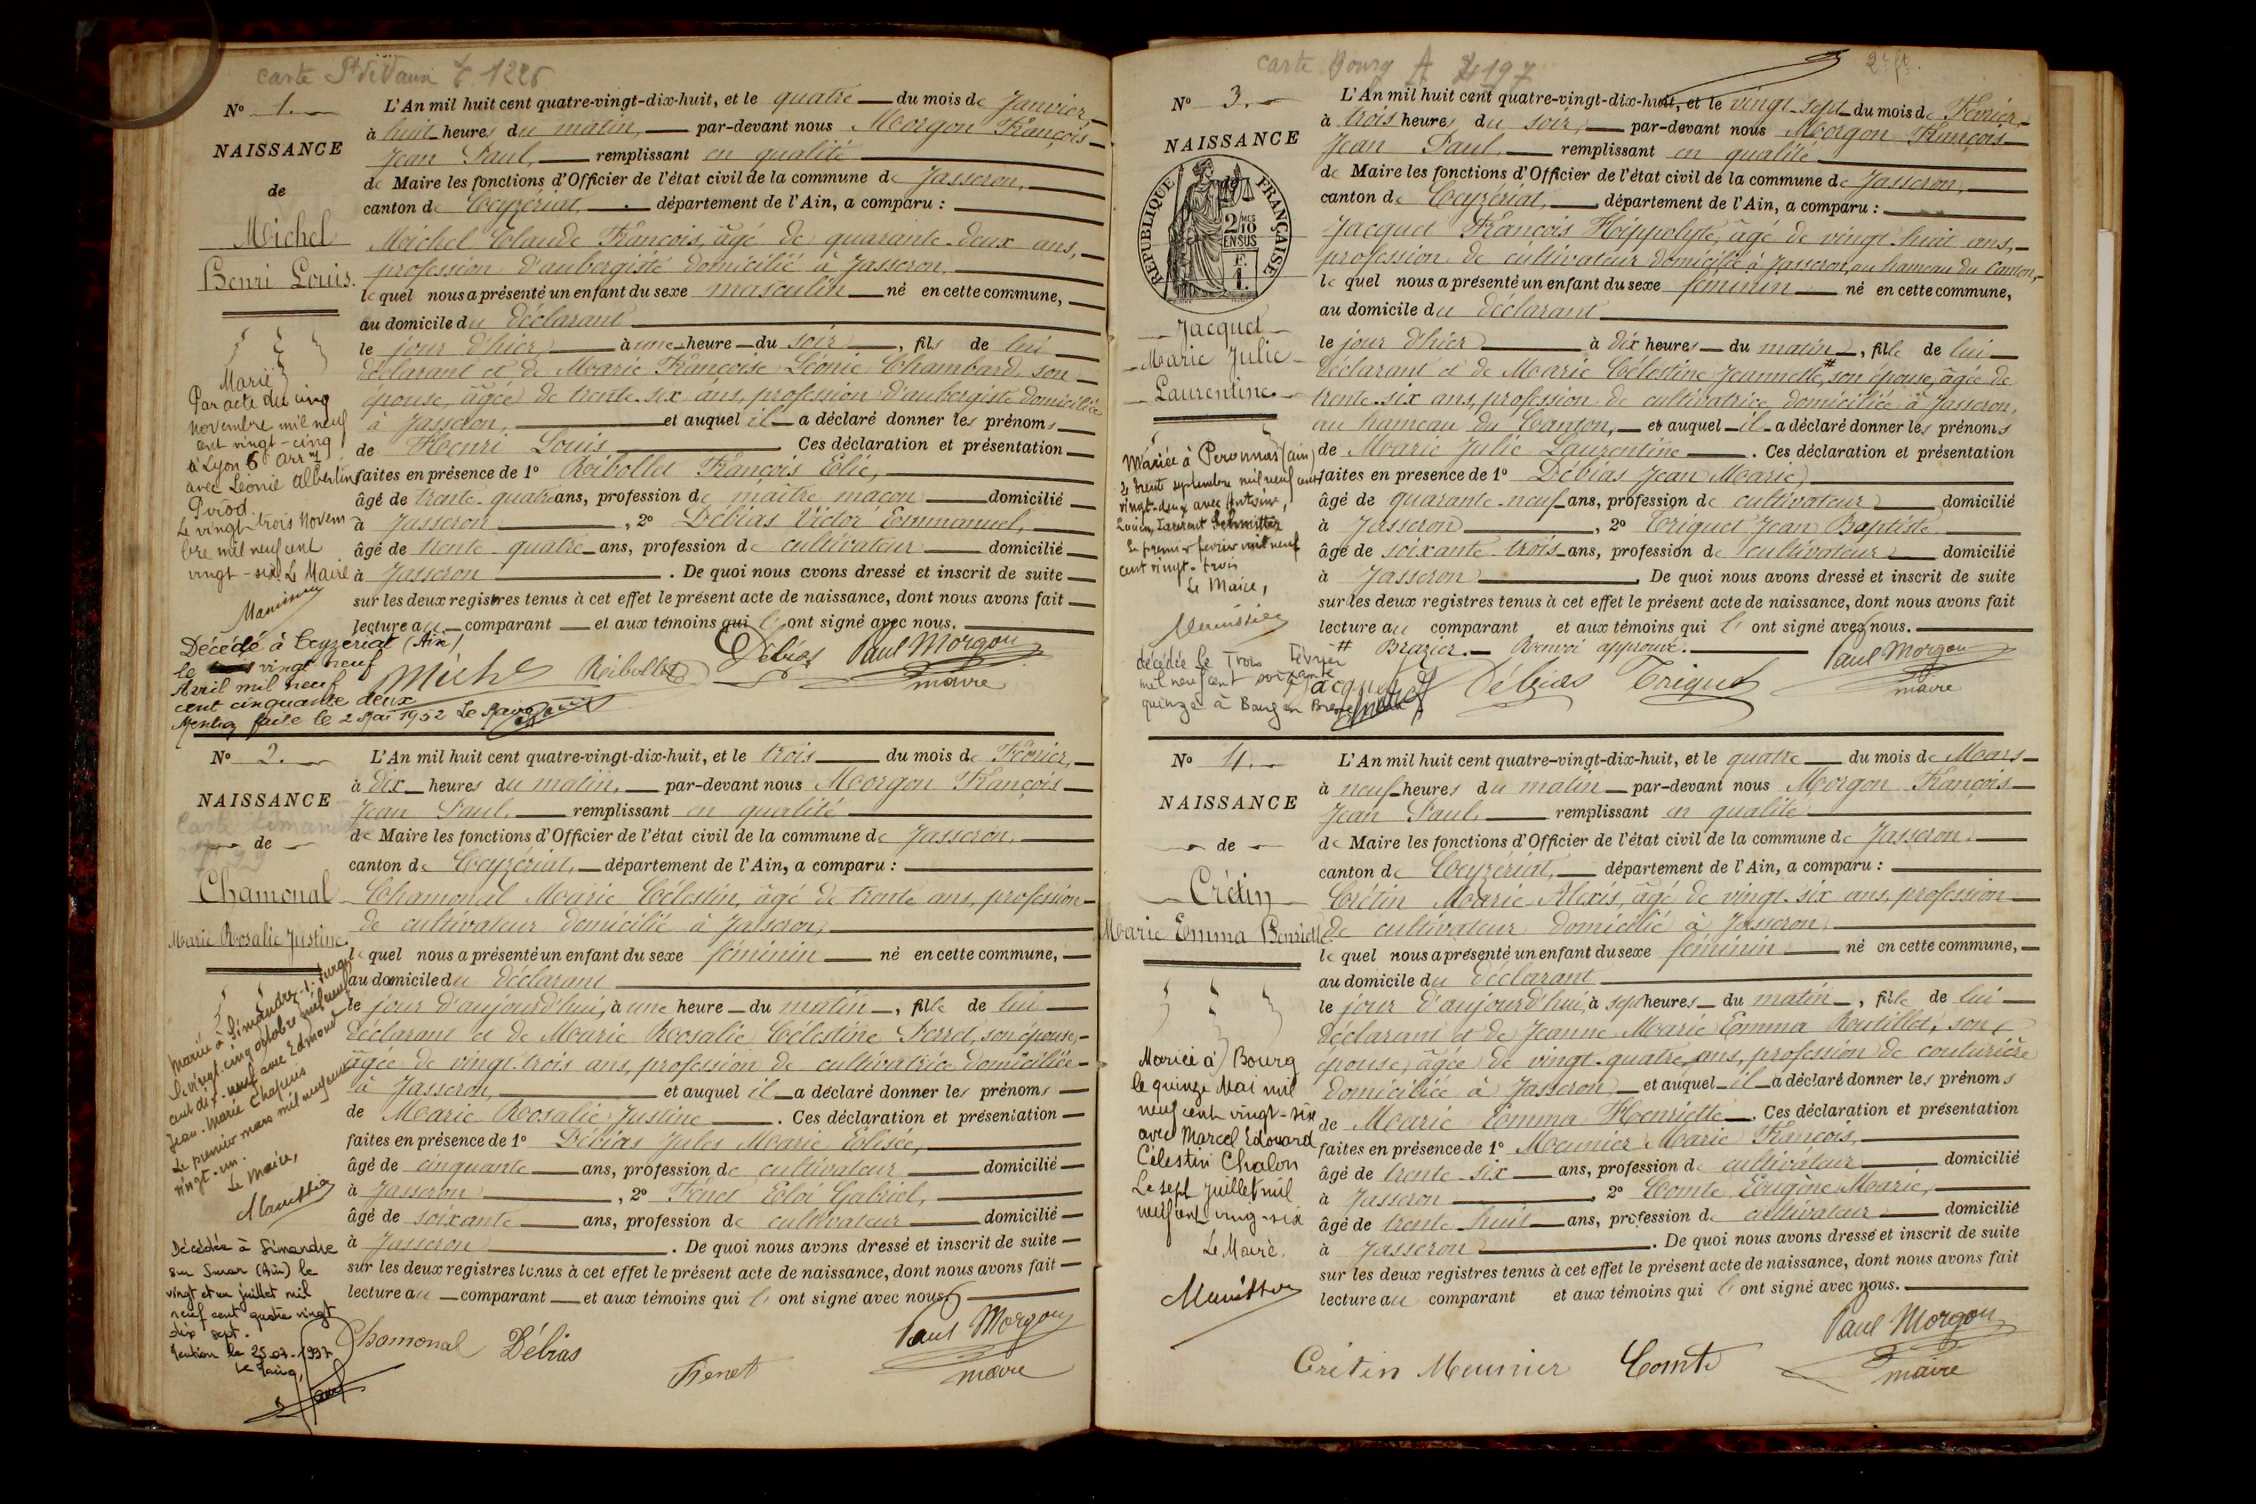 carte
N° 1.
L'An mil huit cent quatre-vingt-dix-huit, et le quatre du mois de Janvier,
à huit heures du matin, par-devant nous Morgon François
NAISSANCE
Jean Paul, remplissant en qualité
de
de Maire les fonctions d'Officier de l'état civil de la commune de Jasseron,
canton de Ceyzériat, département de l'Ain, a comparu :
Michel
Henri Louis.
Michel Claude François, âgé de quarante-deux ans,
profession d'aubergiste domicilié à Jasseron,
lequel nous a présenté un enfant du sexe masculin né en cette commune,
au domicile du déclarant
le jour d'hier à une heure du soir, fils de lui
déclarant et de Marie Françoise Léonie Chambard, son
épouse, âgée de trente-six ans, profession d'aubergiste domiciliée
à Jasseron, et auquel il a déclaré donner les prénoms
de Henri Louis. Ces déclaration et présentation
faites en présence de 1° Ribollet François Élie,
âgé de trente-quatre ans, profession de maître maçon domicilié
à Jasseron, 2° Débias Victor Emmanuel,
âgé de trente-quatre ans, profession de cultivateur domicilié
à Jasseron. De quoi nous avons dressé et inscrit de suite
sur les deux registres tenus à cet effet le présent acte de naissance, dont nous avons fait
lecture au comparant et aux témoins qui l' ont signé avec nous.
Marié
Par acte du cinq
novembre mil neuf
cent vingt-cinq
à Lyon 6e arrt
avec Léonie Albertine
Pirod
Le vingt-trois Novem
bre mil neuf cent
vingt-six. Le Maire
Décédé à Ceyzériat (Ain)
le vingt neuf
Avril mil neuf
cent cinquante deux
Mention faite le 2 Mai 1952 Le Maire
Michel Ribollet Débias Paul Morgon
maire
N° 2.
L'An mil huit cent quatre-vingt-dix-huit, et le trois du mois de Février,
à dix heures du matin, par-devant nous Morgon François
NAISSANCE
Jean Paul, remplissant en qualité
de
de Maire les fonctions d'Officier de l'état civil de la commune de Jasseron,
canton de Ceyzériat, département de l'Ain, a comparu :
Chamonal
Marie Rosalie Justine.
Chamonal Marie Célestin, âgé de trente ans, profession
de cultivateur domicilié à Jasseron,
lequel nous a présenté un enfant du sexe féminin né en cette commune,
au domicile du déclarant
le jour d'aujourd'hui, à une heure du matin, fille de lui
déclarant et de Marie Rosalie Célestine Perret, son épouse,
âgée de vingt-trois ans, profession de cultivatrice domiciliée
à Jasseron, et auquel il a déclaré donner les prénoms
de Marie Rosalie Justine. Ces déclaration et présentation
faites en présence de 1° Débias Jules Marie Élisée,
âgé de cinquante ans, profession de cultivateur domicilié
à Jasseron, 2° Frenet Eloi Gabriel,
âgé de soixante ans, profession de cultivateur domicilié
à Jasseron. De quoi nous avons dressé et inscrit de suite
sur les deux registres tenus à cet effet le présent acte de naissance, dont nous avons fait
lecture au comparant et aux témoins qui l' ont signé avec nous.
Mariée à Simandre-s-Suran
le vingt-cinq octobre mil neuf
cent dix-neuf avec Edmond
Jean-Marie Chapuis
Le premier mars mil neuf cent
vingt-un.
Le Maire,
Décédée à Simandre
sur Suran (Ain) le
vingt et un juillet mil
neuf cent quatre vingt
dix sept.
Mention le 25-07-1997
Le Maire,
Chamonal Débias Frenet Paul Morgon
maire
carte Bourg A
N° 3.
L'An mil huit cent quatre-vingt-dix-huit, et le vingt-sept du mois de Février,
à trois heures du soir, par-devant nous Morgon François
NAISSANCE
Jean Paul, remplissant en qualité
de
de Maire les fonctions d'Officier de l'état civil de la commune de Jasseron,
canton de Ceyzériat, département de l'Ain, a comparu :
RÉPUBLIQUE FRANÇAISE
2/10
EN SUS
Jacquet François Hippolyte, âgé de vingt-huit ans,
profession de cultivateur domicilié à Jasseron, au hameau du Canton,
lequel nous a présenté un enfant du sexe féminin né en cette commune,
au domicile du déclarant
Jacquet
Marie Julie
Laurentine.
le jour d'hier à dix heures du matin, fille de lui
déclarant et de Marie Célestine Jeannette,# son épouse, âgée de
trente-six ans, profession de cultivatrice domiciliée à Jasseron,
au hameau du Canton, et auquel il a déclaré donner les prénoms
de Marie Julie Laurentine. Ces déclaration et présentation
faites en présence de 1° Débias Jean Marie,
âgé de quarante-neuf ans, profession de cultivateur domicilié
à Jasseron, 2° Triquet Jean Baptiste
âgé de soixante-trois ans, profession de cultivateur domicilié
à Jasseron. De quoi nous avons dressé et inscrit de suite
sur les deux registres tenus à cet effet le présent acte de naissance, dont nous avons fait
lecture au comparant et aux témoins qui l' ont signé avec nous.
# Brazier. Renvoi approuvé.
Mariée à Péronnas (Ain)
le trente septembre mil neuf cent
vingt-deux avec Antoine,
Lucien, Laurent Schmitter
Le premier février mil neuf
cent vingt-trois
Le Maire,
décédée le Trois Février
mil neuf cent soixante
quinze à Bourg en Bresse
Jacquet Débias Triquet Paul Morgon
maire
N° 4.
L'An mil huit cent quatre-vingt-dix-huit, et le quatre du mois de Mars
à neuf heures du matin par-devant nous Morgon François
NAISSANCE
Jean Paul, remplissant en qualité
de
de Maire les fonctions d'Officier de l'état civil de la commune de Jasseron,
canton de Ceyzériat, département de l'Ain, a comparu :
Crétin
Marie Emma Henriette.
Crétin Marie Alexis, âgé de vingt-six ans, profession
de cultivateur domicilié à Jasseron,
lequel nous a présenté un enfant du sexe féminin né en cette commune,
au domicile du déclarant
le jour d'aujourd'hui, à sept heures du matin, fille de lui
déclarant et de Jeanne Marie Emma Routillet, son
épouse, âgée de vingt-quatre ans, profession de couturière
domiciliée à Jasseron, et auquel il a déclaré donner les prénoms
de Marie Emma Henriette. Ces déclaration et présentation
faites en présence de 1° Meunier Marie François,
âgé de trente-six ans, profession de cultivateur domicilié
à Jasseron, 2° Comte Eugène Marie,
âgé de trente-huit ans, profession de cultivateur domicilié
à Jasseron. De quoi nous avons dressé et inscrit de suite
sur les deux registres tenus à cet effet le présent acte de naissance, dont nous avons fait
lecture au comparant et aux témoins qui l' ont signé avec nous.
Mariée à Bourg
le quinze Mai mil
neuf cent vingt-six
avec Marcel Edouard
Célestin Chalon
Le sept Juillet mil
neuf cent ving-six
Le Maire.
Crétin Meunier Comte Paul Morgon
maire